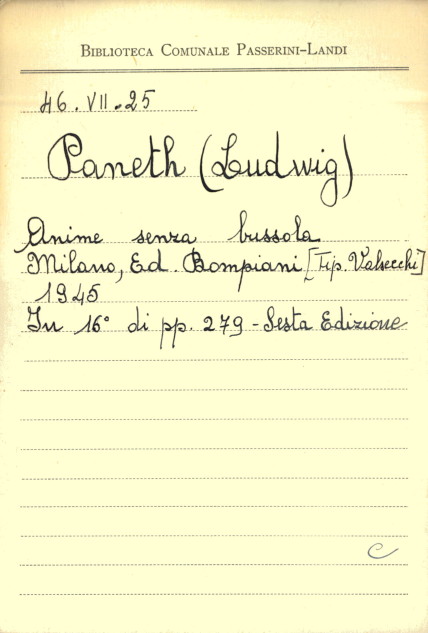 BIBLIOTECA COMUNALE PASSERINI-LANDI
46.VII.25
Paneth (Ludwig)
Anime senza bussola
Milano, Ed. Bompiani [Tip. Valsecchi]
1945
In 16° di pp. 279 - Sesta Edizione
C